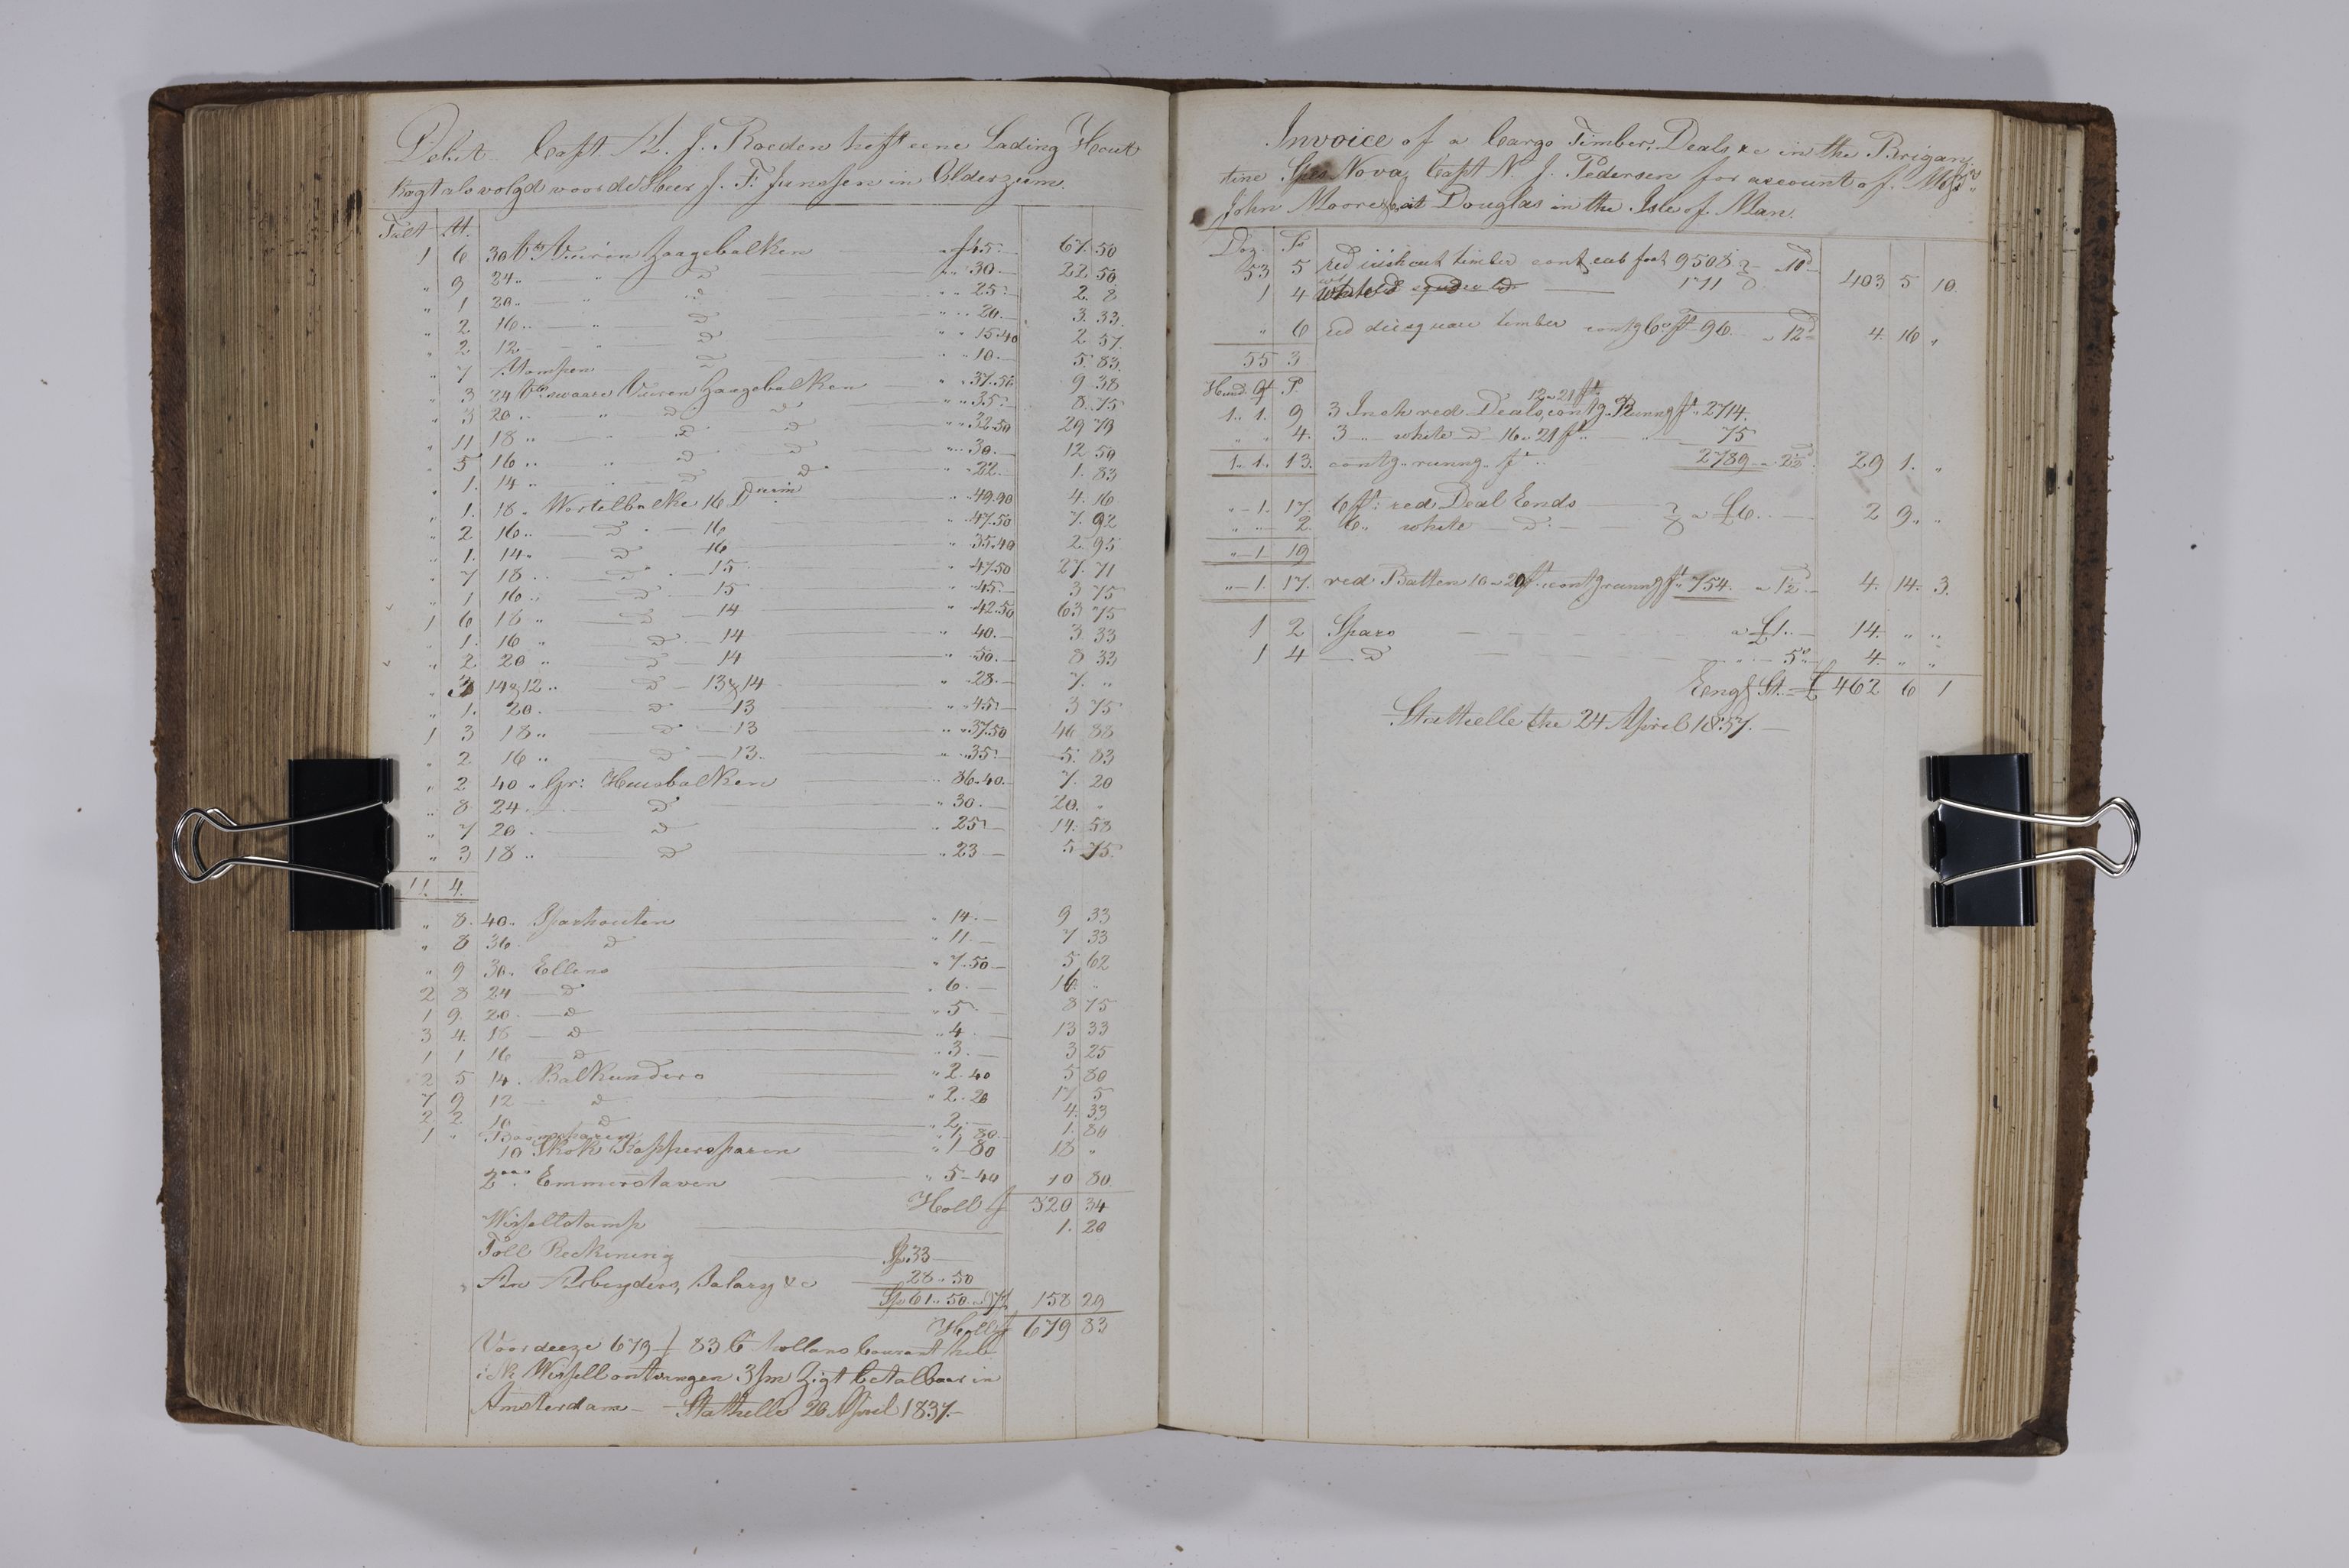 Debet. Capt. K. J. Roeden heft eene Lading Hout
kogt als volgd voor de Heer J. F. Janssen in Olderzum.
Tült St.
1 6 30 Vt Vüiren Zaagebalken f 45.— 67. 50
„ 9 24 „ „ D „ 30.— 22. 50
„ 1 20 „ „ D „ 25.— 2. 8
„ 2 16 „ „ D „ 20.— 3. 33
„ 2 12 „ „ D „ 15.40 2. 57
„ 7 Stompen D „ 10.— 5. 83
„ 3 24 Vt swaare Vüiren Zaagebalken „ 37.50 9 38
„ 3 20 „ „ D D „ 35.— 8. 75
„ 11 18 „ „ D D „ 32.50 29 79
„ 5 16 „ „ D D „ 30.— 12 50
„ 1. 14 „ „ D D „ 22.— 1. 83
„ 1. 18 „ Wortelbalke 16 Duim „ 49.90 4. 16
„ 2. 16 „ D — 16 „ 47.50 7. 92
„ 1. 14 „ D 16 „ 35.40 2. 95
„ 7 18 „ D 15 „ 47.50 27. 71
„ 1 16 „ D 15 „ 45.— 3 75
1 6 18 „ D — 14 „ 42.50 63 75
„ 1. 16 „ D — 14 „ 40.— 3 33
„ 2 20 „ D — 14 „ 50.— 8 33
„ 3 14 & 12 „ D — 13 & 14 „ 28.— 7. „
„ 1. 20 „ D — 13 „ 45.— 3 75
1 3 18 „ D — 13 „ 37.50 46 88
„ 2 16 „ D — 13. „ 35.— 5. 83
„ 2 40 „ Gr: Huusbalken „ 86.40.— 7. 20
„ 8 24 D „ 30.— 20. „
„ 7 20 „ D „ 25.— 14. 58
„ 3 18 „ D „ 23 — 5 75
11. 4.
„ 8. 40 „ Sparhouten „ 14.— 9 33
„ 8 36 D „ 11.— 7 33
„ 9 30 „ Ellens „ 7.50— 5 62
2 8 24 — D „ 6.— 16 „
1 9. 20 — D „ 5 8 75
3 4. 18 — D „ 4 13 33
1 1 16 D „ 3.— 3 25
2 5 14. Balkunders „ 2.40 5 80
7 9 12 D „ 2.20 17 5
2 2 10 D „ 2.— 4. 33
1 „ Boomsparen „ 1. 80.— 1. 80
10 Skok Kappersparen „ 1—80 18 „
2 Emmerstaven „ 5—40 10 80
Holl f 520 34
Wisseltstamp 1. 20
Töll Reckening Sp. 33
An Arbeyders, Salary &c 28 „ 50
Sp 61 „ 50 158 29
Holl f 679 83
Voor deeze 679 f 83 C Hollans Courant heb
ik Wissell ontvangen 3/m Zigt betalbaar in
Amsterdam — Stathelle 26 April 1837.—
Invoice of a Cargo Timber, Deals &c in the Brigan-
tine Spes Nova, Capt N. J. Pedersen for account of Messrs
John Moore & at Douglas in the Isle of Man.
Doz. Ps
53 5 red timber contg cub foot 9508 } „ 10d
1 4 white D D — 171 } 403 5 10.
„ 6 red timber contg Cub ft 96 „ 12d 4. 16 „
55 3
Hund. Qr. P.
12 a 21 ft
1. 1. 9 3 Inch red Deals, contg. Runng ft „ 2714.
„ „ 4. 3 — white D 16 a 21 ft 75
1. 1. 13. contg. runng. ft 2789 a 2½d 29 1. „
„ 1. 17. 6 ft: red Deal Ends } a £6.— 2 9 „ „
„ „ 2. 6 „ white — D. —
„ 1 19
„ 1. 17. red Batten 10 a 20 ft contg runng ft 754. a 1½d 4. 14. 3.
1 2 Spars a £1.— 14. „ „
1 4 — D „ 5s 4. „ „
Engl. St. £ 462 6 1
Stathelle the 24 April 1837.—